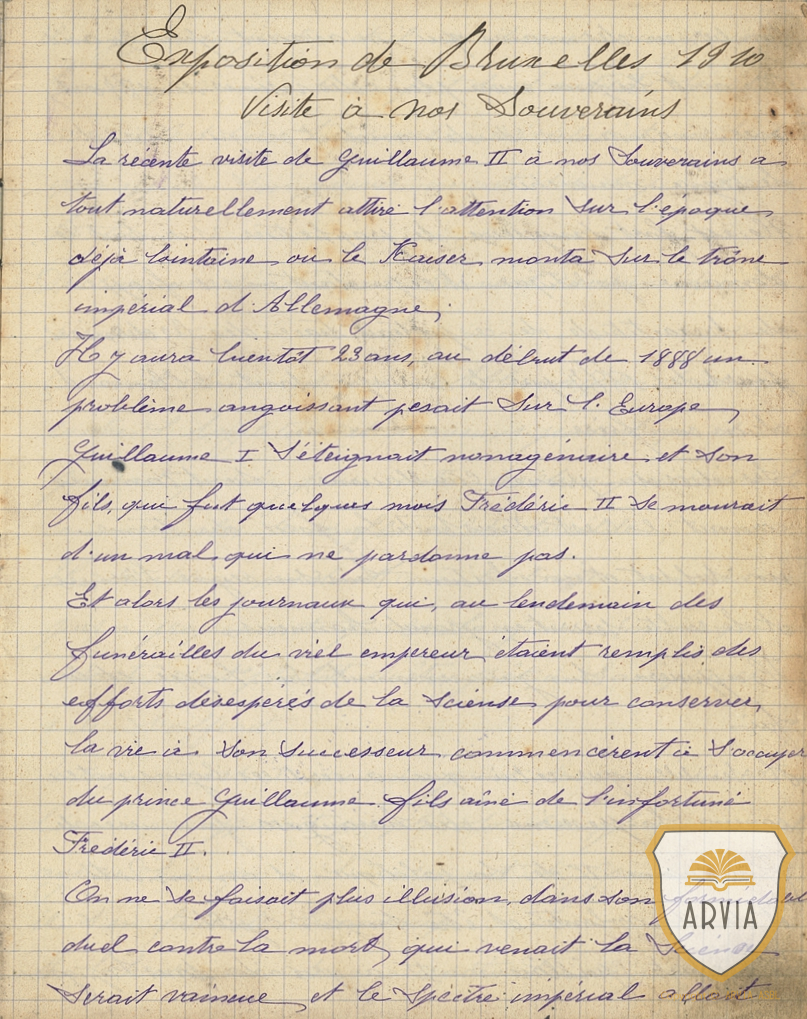 Exposition de Bruxelles 1910
Visite à nos Souverains
La récente visite de Guillaume II à nos Souverains a
tout naturellement attiré l'attention sur l'époque
déjà lointaine où le Kaiser monta sur le trône
impérial d'Allemagne.
Il y aura bientôt 23 ans, au début de 1888 un
problème angoissant pesait sur l'Europe,
Guillaume I s'éteignait nonagénaire et son
fils, qui fut quelques mois Frédéric II se mourait
d'un mal qui ne pardonne pas.
Et alors les journaux qui, au lendemain des
funérailles du viel empereur étaient remplis des
efforts désespérés de la sciense pour conserver
la vie à son successeur commencèrent à s'occuper
du prince Guillaume fils aîné de l'infortuné
Frédéric II.
On ne se faisait plus illusion, dans son
duel contre la mort, qui venait la Science
serait vaincue, et le spectre impérial allait
ARVIA